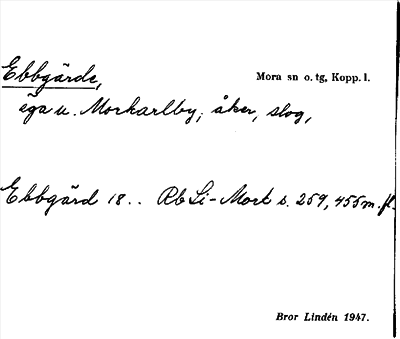 Ebbgärde,
Mora sn o. tg, Kopp. l.
äga u. Morkarlby; åker, slog,
Ebbgärd 18.. Rb Li-Mork s. 259, 455 m. fl.
Bror Lindén 1947.